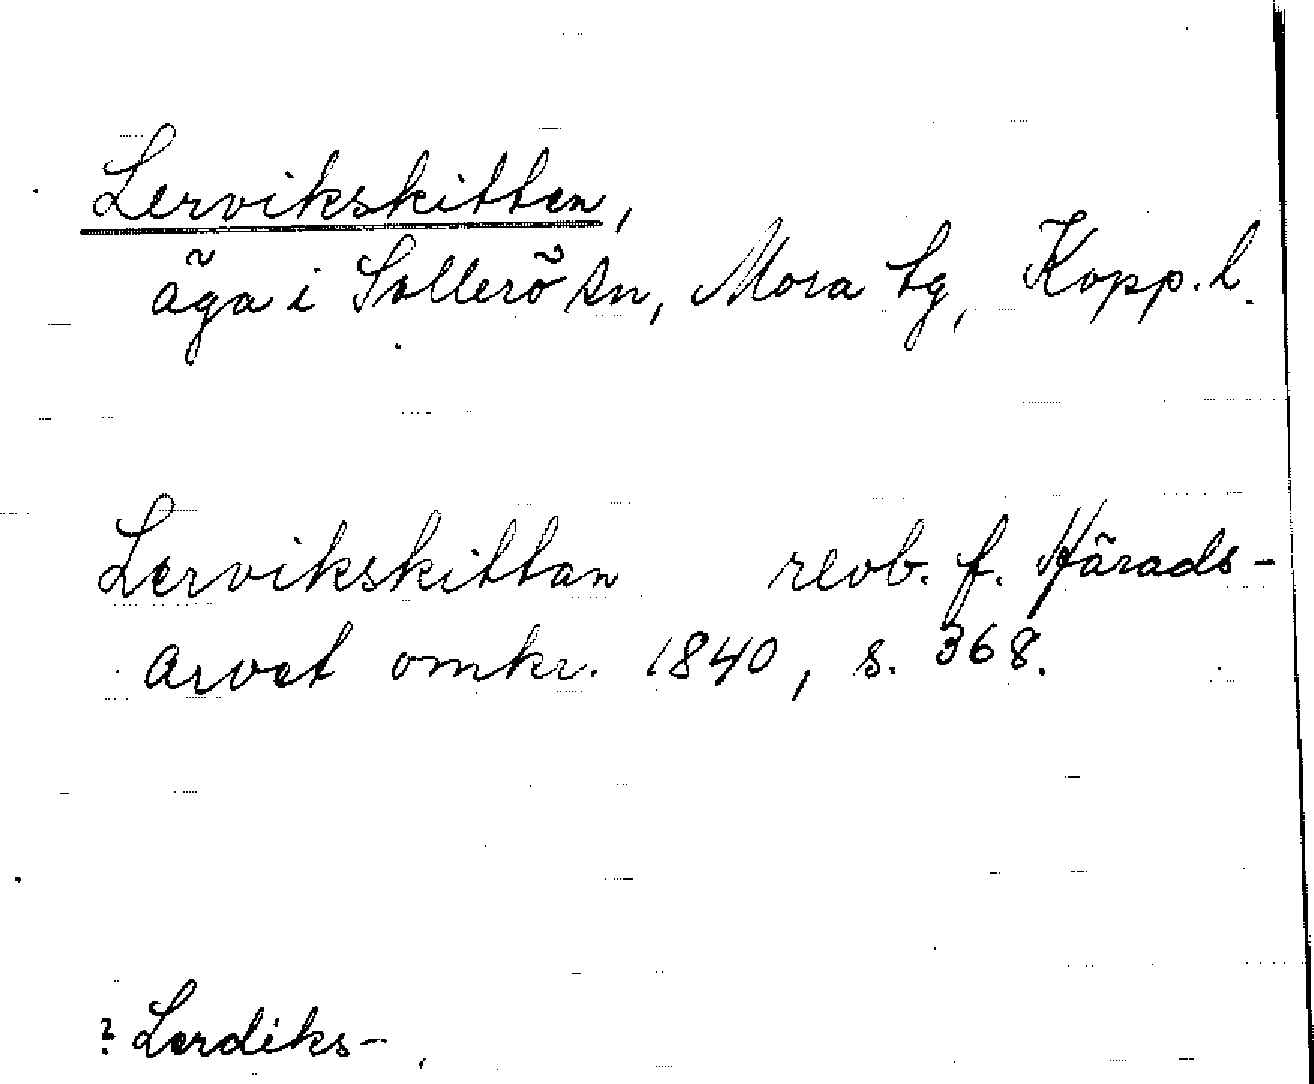 Lervikskitten,
äga i Sollerö sn, Mora tg, Kopp. l.
Lervikskittan revb. f. Härads-
arvet omkr. 1840, s. 368.
? Lerdiks-